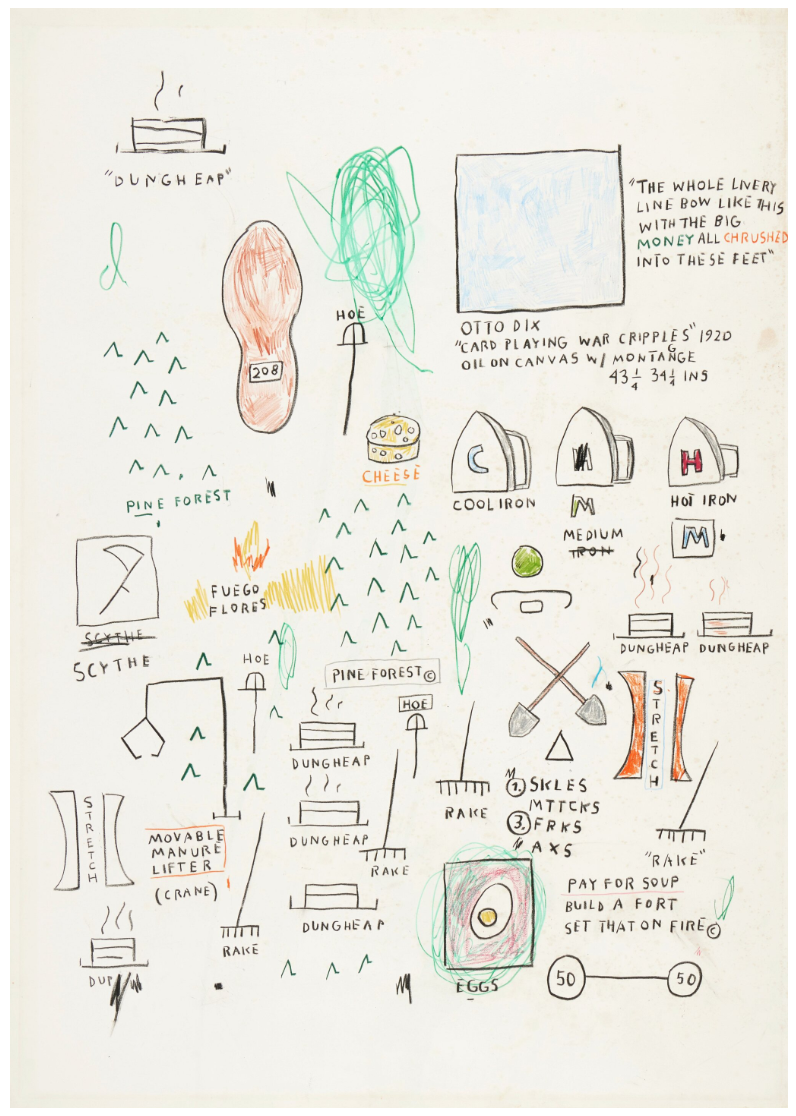 "DUNGHEAP"
"THE WHOLE LIVERY
LINE BOW LIKE THIS
WITH THE BIG
MONEY ALL CHRUSHED
INTO THESE FEET"
HOE
208
OTTO DIX
"CARD PLAYING WAR CRIPPLES" 1920
OIL ON CANVAS W/ MONTANGE
G
43 1/4 34 1/4 INS
CHEESE
PINE FOREST
C
M
H
COOL IRON
M
MEDIUM
IRON
HOT IRON
M
FUEGO
FLORES
SCYTHE
SCYTHE
HOE
PINE FOREST ©
DUNGHEAP
DUNGHEAP
STRETCH
HOE
DUNGHEAP
RAKE
1. SKLES
MTTCKS
3. FRKS
" AXS
STRETCH
MOVABLE
MANURE
LIFTER
(CRANE)
DUNGHEAP
RAKE
"RAKE"
PAY FOR SOUP
BUILD A FORT
SET THAT ON FIRE ©
DUNGHEAP
RAKE
EGGS
50
50